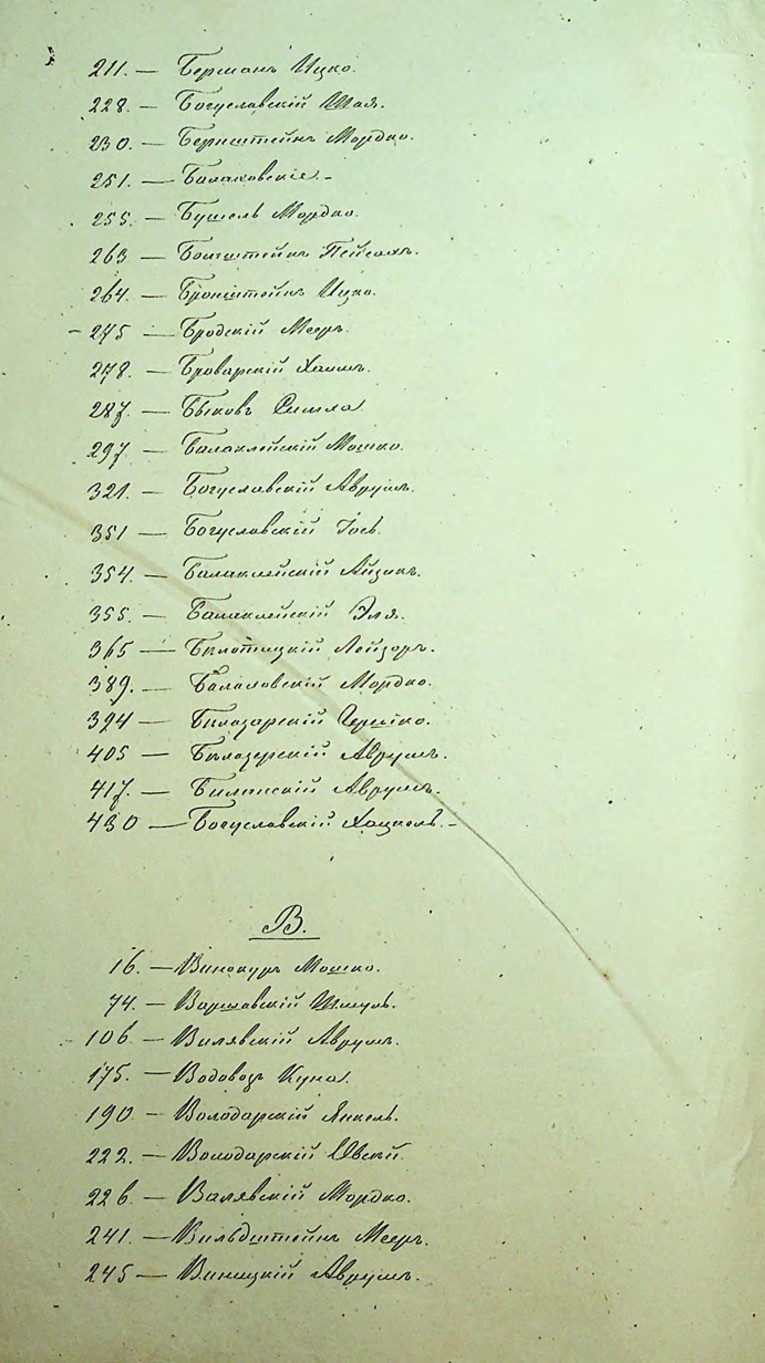 211. — Берманъ Ицко.
228. — Богуславскій Шая.
230. — Бернштейнъ Мордко.
251. — Балаковскіе. –
255. — Бушель Мордко.
263 — Бомштейнъ Пейсахъ.
264. — Бронштейнъ Ицко.
275 — Бродскій Мееръ.
278. — Броварскій Хаимъ.
287. — Быковъ Симха
297. — Балаклейскій Мошко.
321. — Богуславскій Аврумъ.
351 — Богуславскій Іось.
354. — Балаклейскій Айзикъ.
355. — Балаклейскій Эля.
365 — Билотицкій Лейзоръ.
389. — Балаловскій Мордко.
394 — Билазарскій Гершко.
405 — Билозерскій Аврумъ.
417. — Билинскій Аврумъ.
430 — Богуславскій Хацкель. –
В.
16. — Винокуръ Мошко.
74. — Варшавскій Шмуль.
106. — Вилявскій Аврумъ.
175. — Водовозъ Куна.
190. — Володарскій Янкель.
222. — Володарскій Овсій
226 — Валявскій Мордко.
241. — Вильдштейнъ Мееръ.
245 — Виницкій Аврумъ.